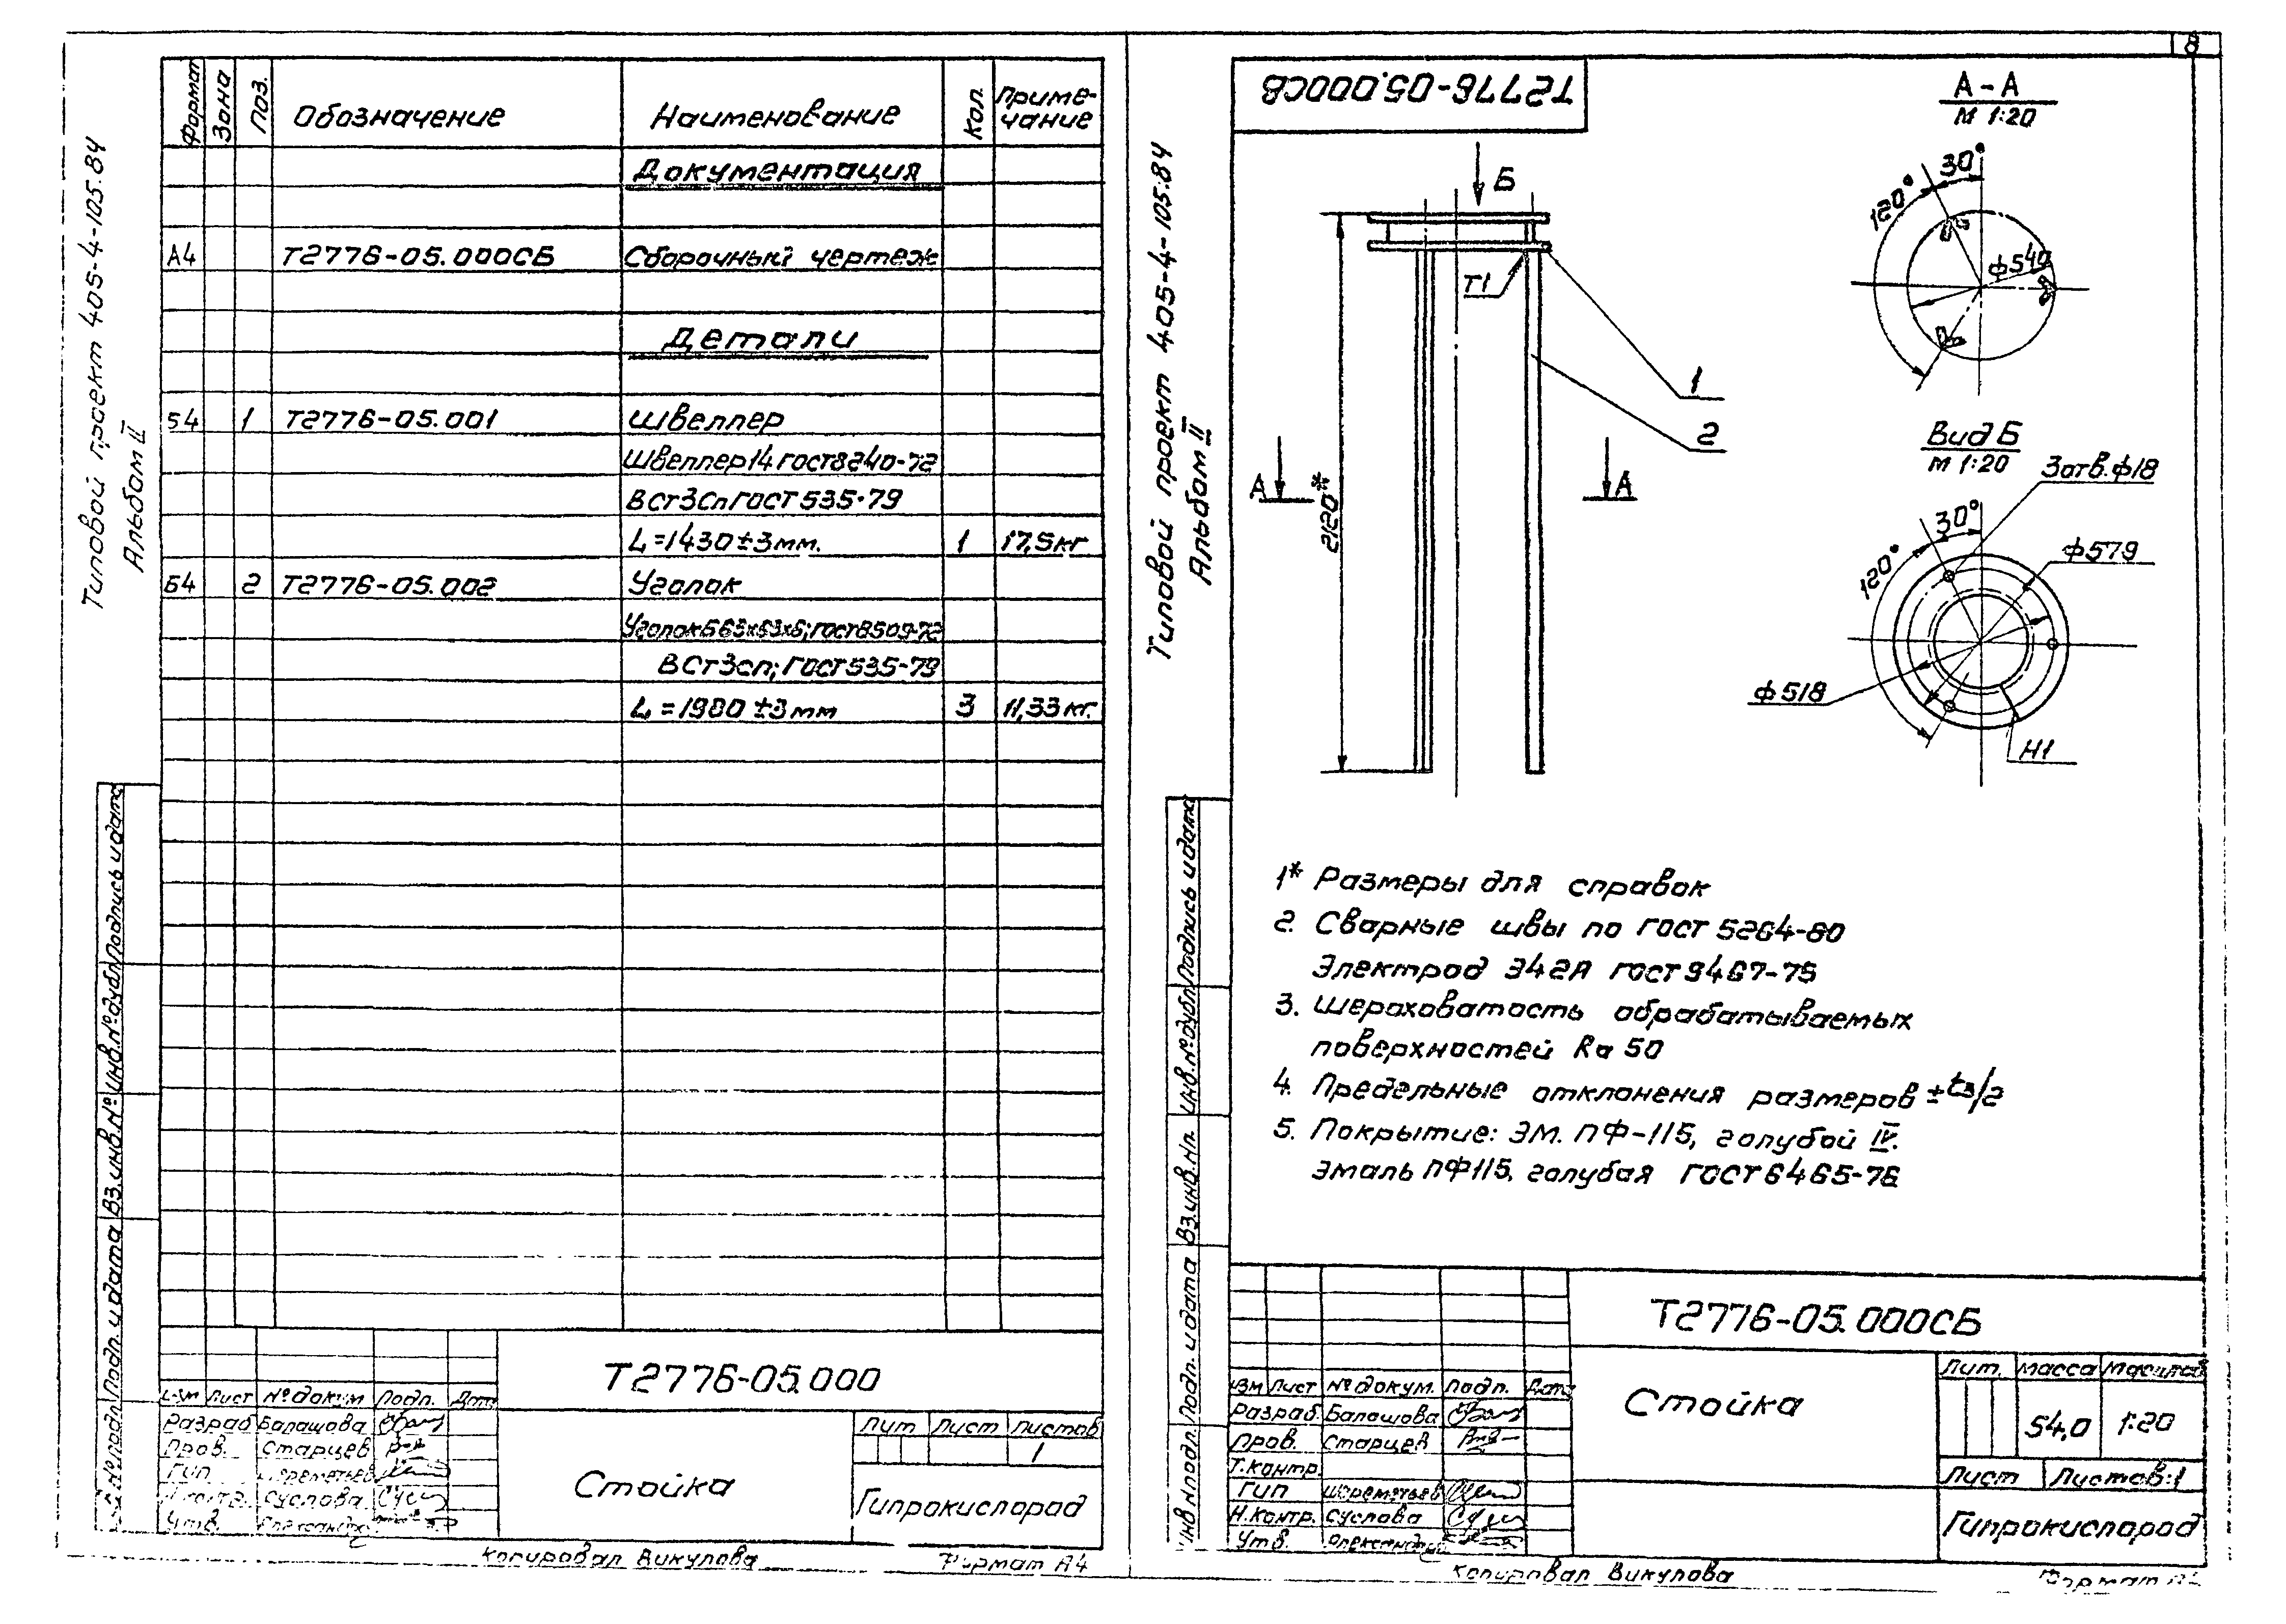 Типовой проект 405-4-105.84
Альбом II
Формат
Зона
Поз.
Обозначение
Наименование
Кол.
Приме-
чание
Документация
А4 Т2776-05.000СБ Сборочный чертеж
Детали
Б4 1 Т2776-05.001 Швеллер
Швеллер 14 ГОСТ 8240-72
ВСт3сп ГОСТ 535-79
L=1430±3мм. 1 17,5кг
Б4 2 Т2776-05.002 Уголок
Уголок Б 63х63х6; ГОСТ 8509-72
ВСт3сп; ГОСТ 535-79
L=1980±3мм 3 11,33кг.
Инв.№подл. Подп. и дата Вз.инв.№ Инв.№дубл. Подпись и дата
Т2776-05.000
Изм Лист №докум Подп. Дата
Разраб Балашова
Пров. Старцев
ГИП Шереметьев
Н.контр. Суслова
Утв.
Стойка
Лит Лист Листов
1
Гипрокислород
Копировал Викулова Формат А4
8
Типовой проект 405-4-105.84
Альбом II
Т2776-05.000СБ
Б
Т1
1
2
А А
2120*
А-А
М 1:20
30°
120°
ф540
Вид Б
М 1:20
3отв.ф18
30°
120°
ф579
ф518
Н1
1* Размеры для справок
2. Сварные швы по ГОСТ 5264-80
Электрод Э42А ГОСТ 9467-75
3. Шероховатость обрабатываемых
поверхностей Ra 50
4. Предельные отклонения размеров ±t3/2
5. Покрытие: ЭМ. ПФ-115, голубой IV.
Эмаль ПФ115, голубая ГОСТ 6465-76
Инв.№подл. Подп. и дата Вз.инв.№ Инв.№дубл. Подпись и дата
Т2776-05.000СБ
Изм Лист №докум. Подп. Дата
Разраб. Балашова
Пров. Старцев
Т.контр.
ГИП Шереметьев
Н.контр. Суслова
Утв.
Стойка
Лит. Масса Масштаб
54,0 1:20
Лист Листов:1
Гипрокислород
Копировал Викулова Формат А4